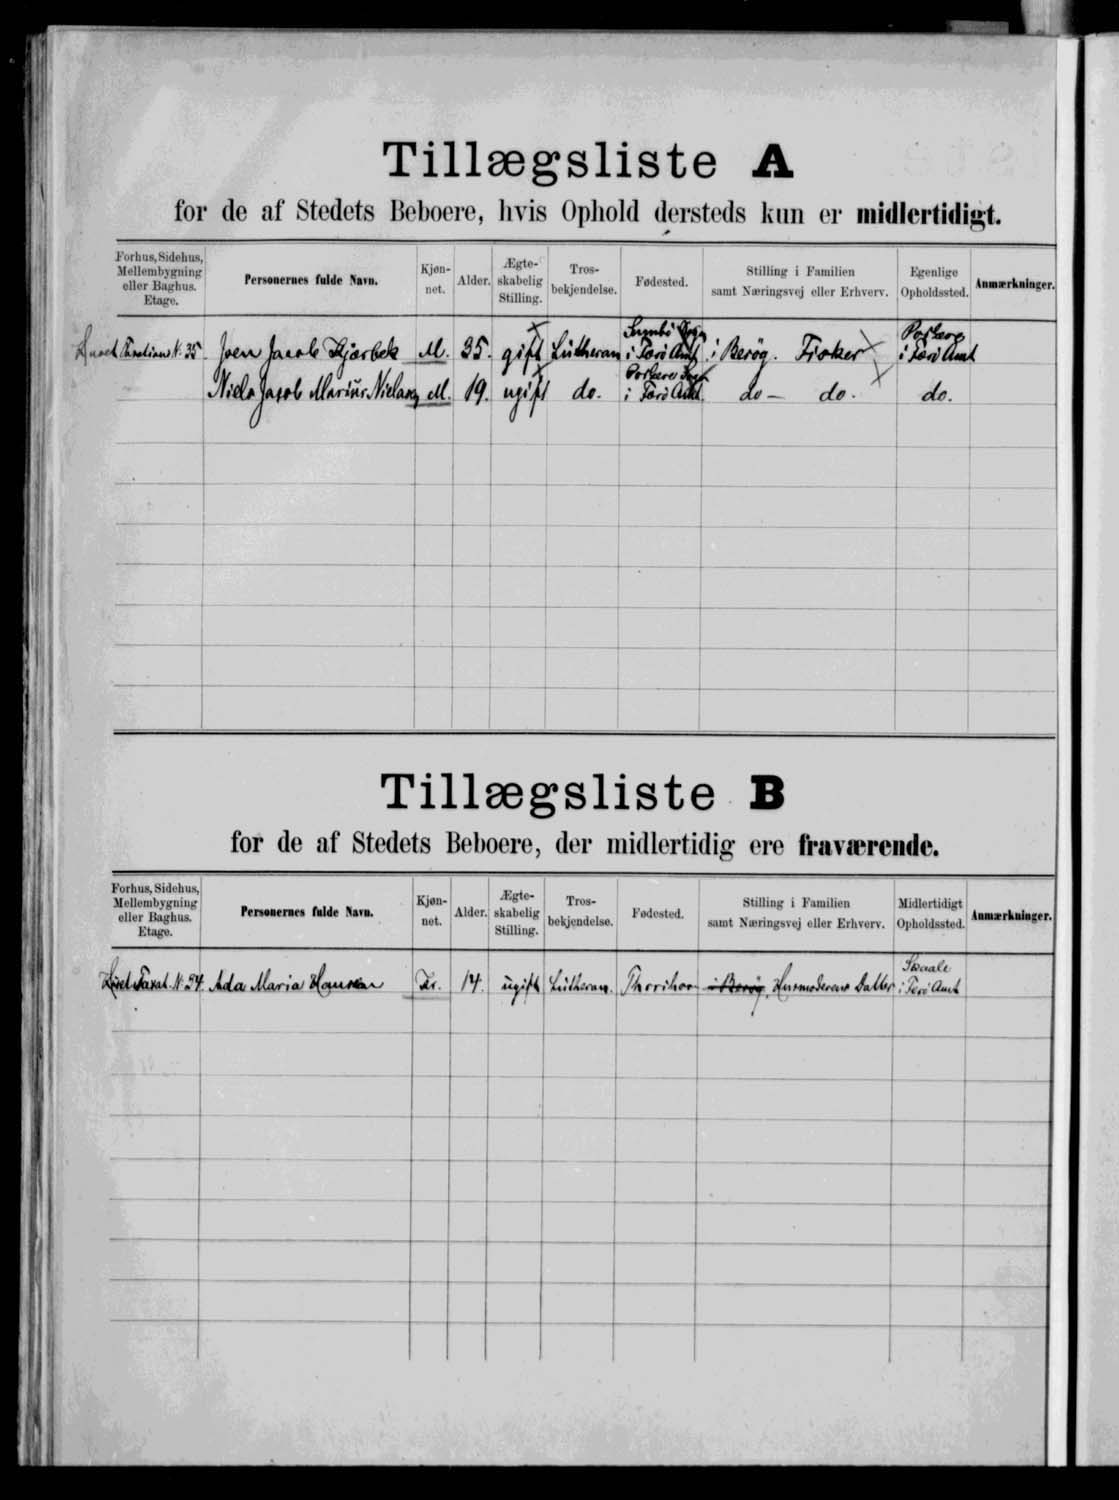 Tillægsliste A
for de af Stedets Beboere, hvis Ophold dersteds kun er midlertidigt.
Forhus, Sidehus, Mellembygning eller Baghus. Etage. Personernes fulde Navn. Kjøn-net. Alder. Ægte-skabelig Stilling. Tros-bekjendelse. Fødested. Stilling i Familien samt Næringsvej eller Erhverv. Egenlige Opholdssted. Anmærkninger.
Huset N. 35. Joen Jacob Kjærbek M. 35. gift Lutheran Sumbø Sogn i Færø Amt i Besøg. Fisker Porkere i Færø Amt
Niels Jacob Marius Nielsen M. 19. ugift do. Porkere Sogn i Færø Amt. do - do. do.
Tillægsliste B
for de af Stedets Beboere, der midlertidig ere fraværende.
Forhus, Sidehus, Mellembygning eller Baghus. Etage. Personernes fulde Navn. Kjøn-net. Alder. Ægte-skabelig Stilling. Tros-bekjendelse. Fødested. Stilling i Familien samt Næringsvej eller Erhverv. Midlertidigt Opholdssted. Anmærkninger.
Huset N. 34 Ada Maria Hansen Kv. 14. ugift Lutheran. i Besøg, Husmoderens Datter i Færø Amt